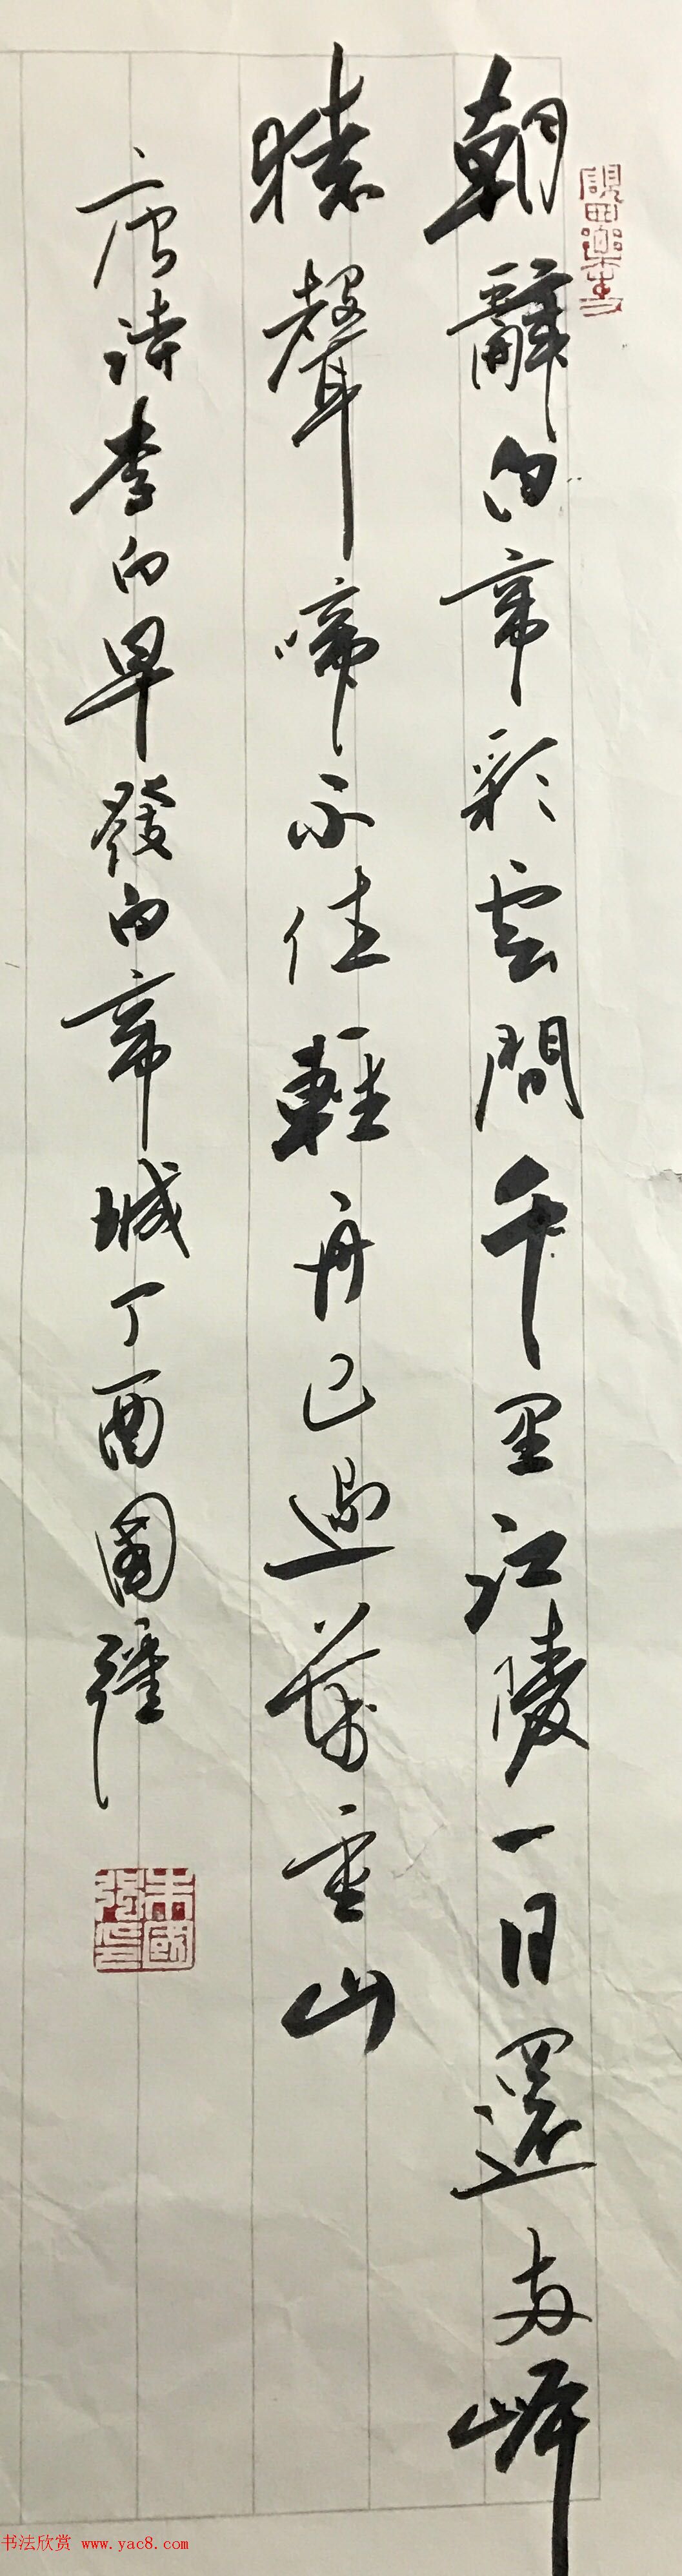 朝辭白帝彩雲間千里江陵一日還兩岸
猿聲啼不住輕舟已過萬重山
唐詩李白早發白帝城丁酉國強
朱國強印
书法欣赏 www.yac8.com